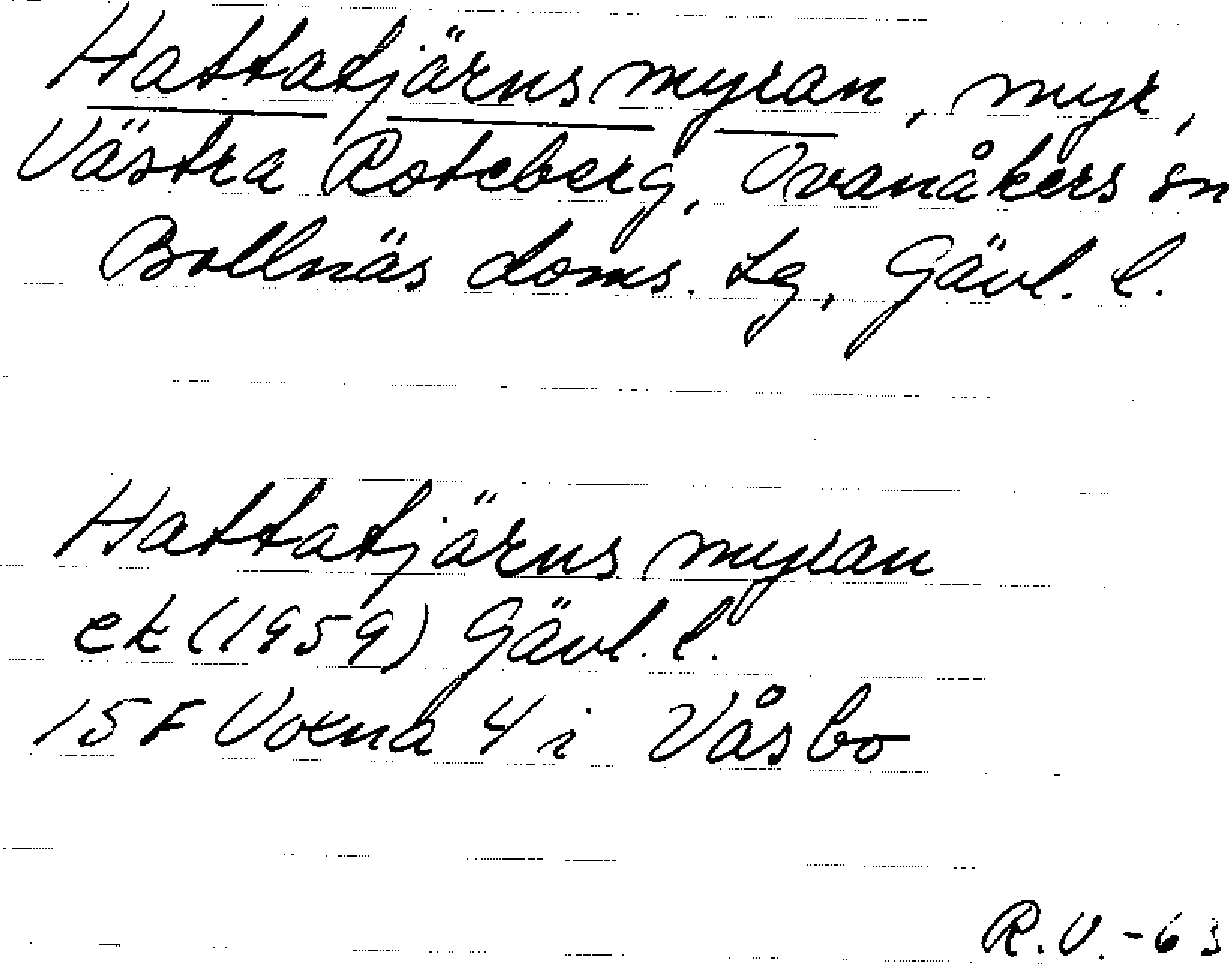 Hattatjärnsmyran, myr,
Västra Roteberg, Ovanåkers sn
Bollnäs doms. tg, Gävl. l.
Hattatjärnsmyran
ek (1959) Gävl. l.
15F Voxna 4 i Våsbo
R.V. -63